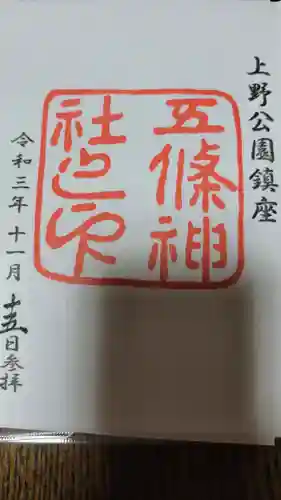 上野公園鎮座
五條神
社之印
令和三年十一月十五日参拝